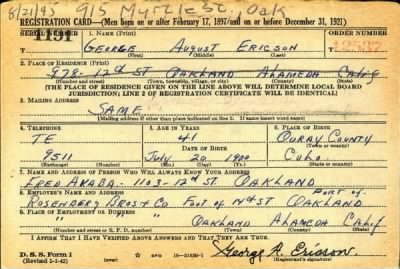 8/21/43 915 Myrtle St. Oak
REGISTRATION CARD—(Men born on or after February 17, 1897 and on or before December 31, 1921)
SERIAL NUMBER 1. NAME (Print) ORDER NUMBER
1191 GEORGE AUGUST ERICSON
(First) (Middle) (Last)
2. PLACE OF RESIDENCE (Print)
978-12th ST OAKLAND ALAMEDA CALIF
(Number and street) (Town, township, village, or city) (County) (State)
[THE PLACE OF RESIDENCE GIVEN ON THE LINE ABOVE WILL DETERMINE LOCAL BOARD
JURISDICTION; LINE 2 OF REGISTRATION CERTIFICATE WILL BE IDENTICAL]
3. MAILING ADDRESS
SAME
[Mailing address if other than place indicated on line 2. If same insert word same]
4. TELEPHONE 5. AGE IN YEARS 6. PLACE OF BIRTH
TE 41 OURAY COUNTY
DATE OF BIRTH (Town or county)
9511 JULY 1900 COLO.
(Exchange) (Number) (Mo.) (Day) (Yr.) (State or country)
7. NAME AND ADDRESS OF PERSON WHO WILL ALWAYS KNOW YOUR ADDRESS
FRED 1103-12th ST OAKLAND
8. EMPLOYER'S NAME AND ADDRESS PORT OF
BROS & CO FOOT OF ST OAKLAND
9. PLACE OF EMPLOYMENT OR BUSINESS
" " OAKLAND ALAMEDA CALIF
(Number and street or R. F. D. number) (Town) (County) (State)
I AFFIRM THAT I HAVE VERIFIED ABOVE ANSWERS AND THAT THEY ARE TRUE.
D. S. S. Form 1 George A. Ericson
(Registrant's signature)